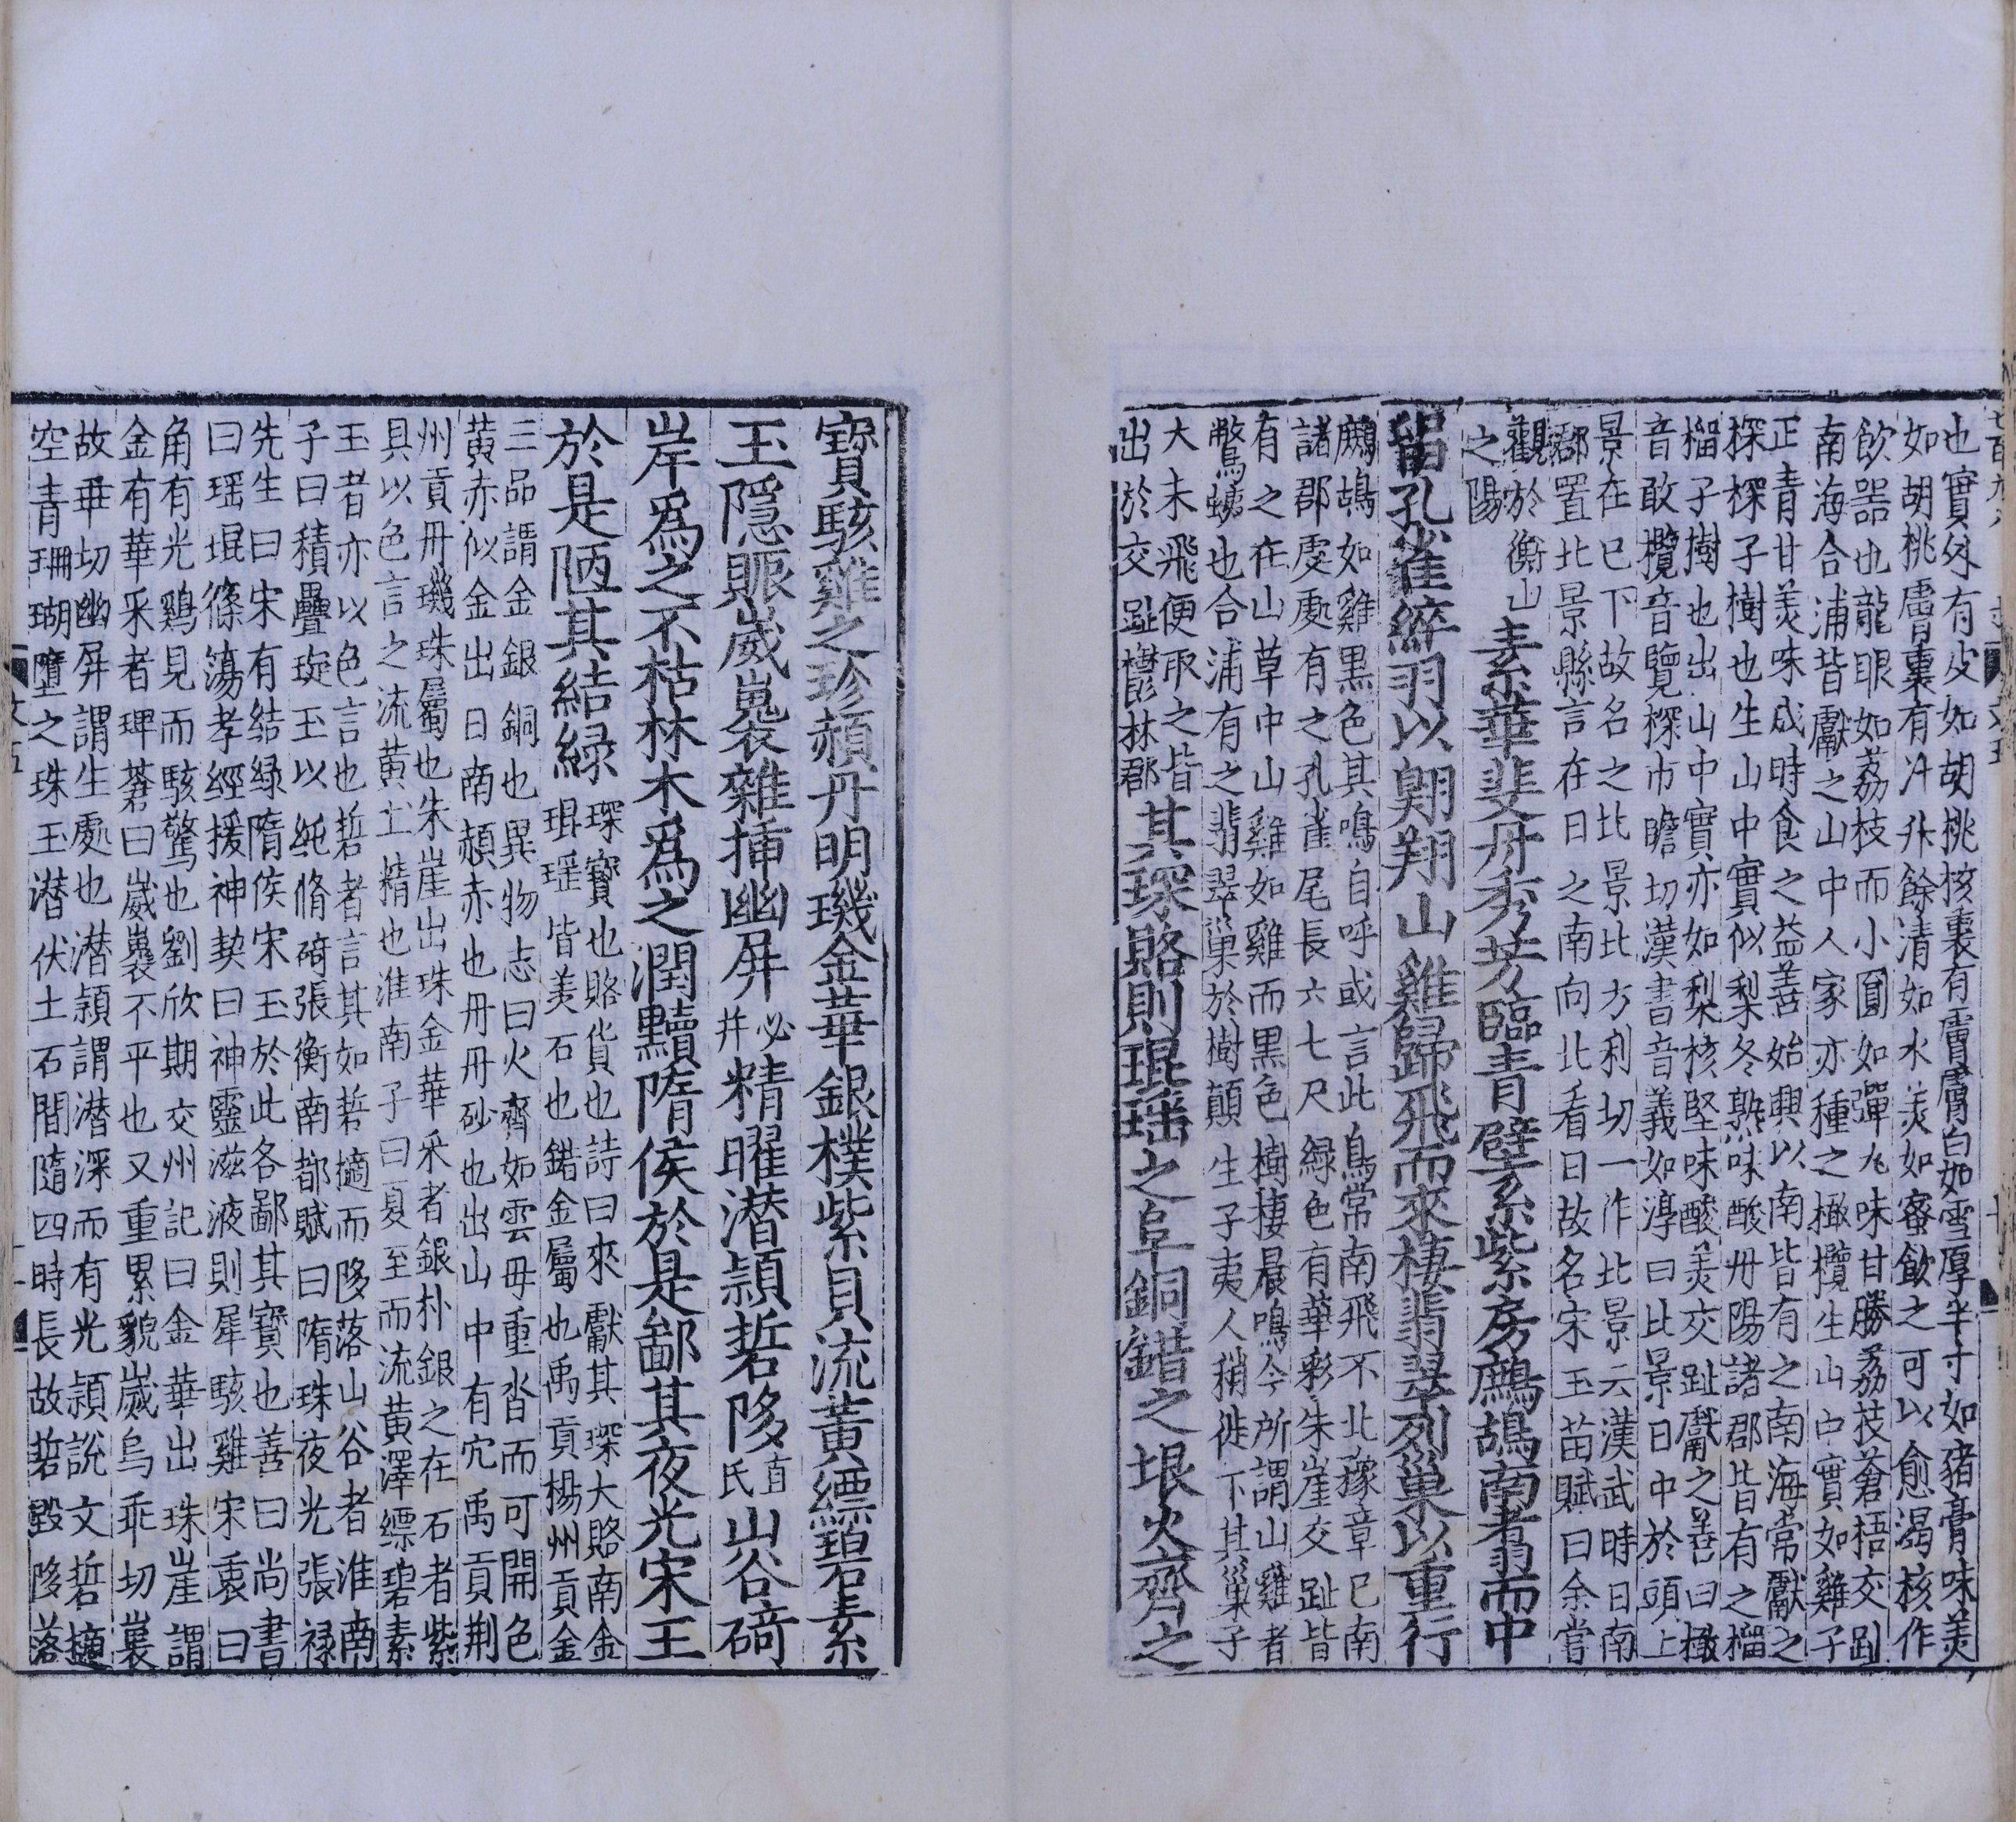 也實外有皮如胡桃核裏有膚膚白如雪厚半寸如猪膏味美
如胡桃膚裏有汁升餘清如水美如蜜飲之可以愈渴核作
飲器也龍眼如荔枝而小圓如彈丸味甘勝荔枝蒼梧交趾
南海合浦皆獻之山中人家亦種之橄欖生山中實如雞子
正青甘美味成時食之益善始興以南皆有之南海常獻之
探探子樹也生山中實似梨冬熟味酸丹陽諸郡皆有之榴
榴子樹也出山中實亦如梨核堅味酸美交趾獻之善曰橄
音敢欖音覽探市瞻切漢書音義如淳曰比景日中於頭上
景在已下故名之比景比方利切一作北景云漢武時日南
郡置北景縣言在日之南向北看日故名宋玉笛賦曰余嘗
觀於衡山
之陽
素華斐丹秀芳臨青壁系紫房鷓鴣南翥而中
留孔雀綷羽以翺翔山雞歸飛而來棲翡翠列巢以重行
鷓鴣如雞黑色其鳴自呼或言此鳥常南飛不北豫章已南
諸郡處處有之孔雀尾長六七尺綠色有華彩朱崖交趾皆
有之在山草中山雞如雞而黑色樹棲晨鳴今所謂山雞者
鷩䳋也合浦有之翡翠巢於樹顛生子夷人稍徙下其巢子
大未飛便取之皆
出於交趾鬱林郡
其琛賂則琨瑶之阜銅鍇之垠火齊之
寶駭雞之珍赬丹明璣金華銀樸紫貝流黃縹碧素
玉隱賑崴㠢雜揷幽屏
必
并
精曜潛頴硩陊
直
氏
山谷碕
岸爲之不枯林木爲之潤黷隋侯於是鄙其夜光宋王
於是陋其結緑
琛寶也賂貨也詩曰來獻其琛大賂南金
琨瑶皆美石也鍇金屬也禹貢楊州貢金
三品謂金銀銅也異物志曰火齊如雲母重沓而可開色
黃赤似金出日南赬赤也丹丹砂也出山中有穴禹貢荆
州貢丹璣珠屬也朱崖出珠金華采者銀朴銀之在石者紫
具以色言之流黃土精也淮南子曰夏至而流黃澤縹碧素
玉者亦以色言也硩者言其如硩擿而陊落山谷者淮南
子曰積疊琁玉以純脩碕張衡南都賦曰隋珠夜光張禄
先生曰宋有結緑隋侯宋玉於此各鄙其寶也善曰尚書
曰瑶琨篠簜孝經援神契曰神靈滋液則犀駭雞宋衷曰
角有光鷄見而駭驚也劉欣期交州記曰金華出珠崖謂
金有華采者玾蒼曰崴㠢不平也又重累貌崴烏乖切㠢
故乖切幽屏謂生處也潛頴謂潛深而有光頴說文硩擿
空青珊瑚墮之珠玉潛伏土石間隨四時長故硩毀陊落